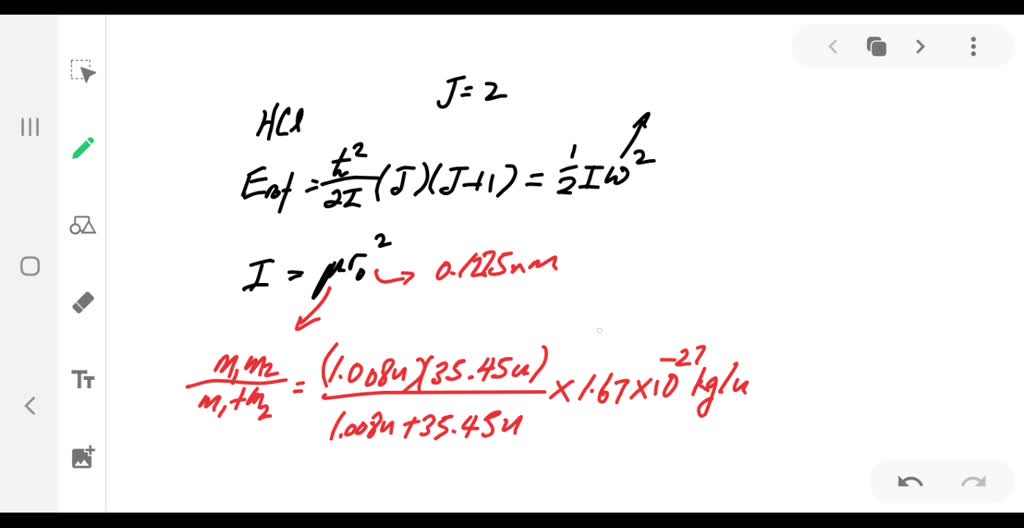 J = 2
HCl
E_rot = ℏ²/2I (J)(J+1) = 1/2 I ω²
I = μr₀² → 0.1275nm
m₁m₂/m₁+m₂ = (1.008u)(35.45u)/1.008u+35.45u × 1.67×10⁻²⁷ kg/u
Tт